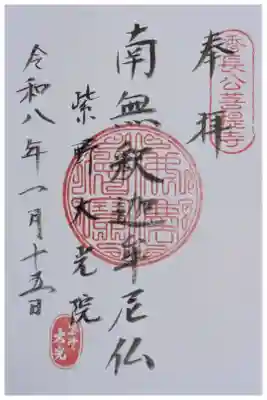 奉拝
秀長公菩提寺
南無釈迦牟尼仏
紫野大光院
令和八年一月十五日